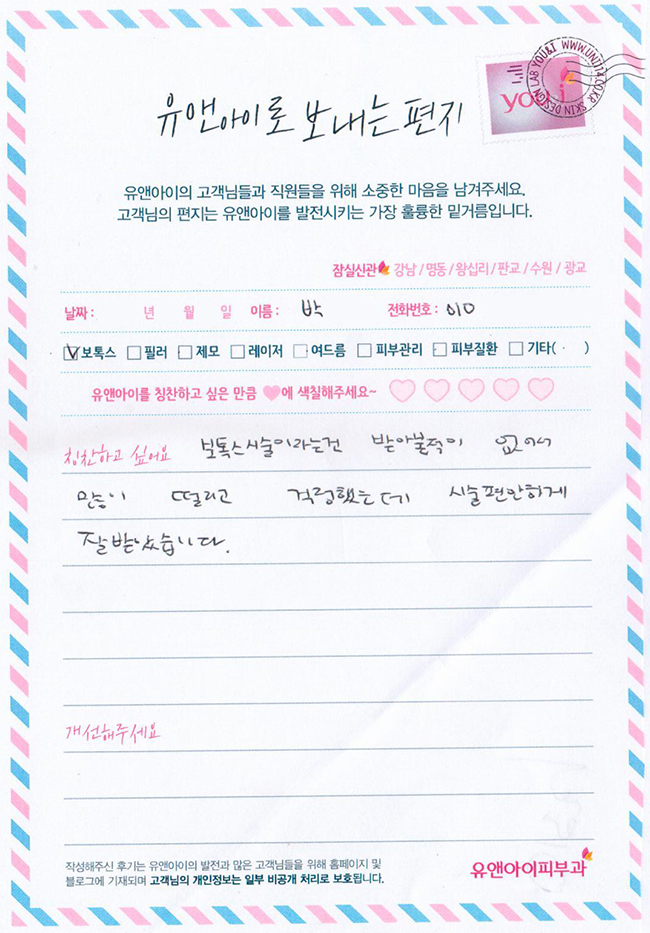 YOU&I WWW.UNI114.CO.KR SKIN DESIGN LAB
you i
유앤아이로 보내는 편지
유앤아이의 고객님들과 직원들을 위해 소중한 마음을 남겨주세요.
고객님의 편지는 유앤아이를 발전시키는 가장 훌륭한 밑거름입니다.
잠실신관 강남 / 명동 / 왕십리 / 판교 / 수원 / 광교
날짜 : 년 월 일 이름 : 박 전화번호 : 010
보톡스 필러 제모 레이저 여드름 피부관리 피부질환 기타( )
유앤아이를 칭찬하고 싶은 만큼 에 색칠해주세요~
칭찬하고 싶어요 보톡스시술이라는건 받아볼적이 없어서
많이 떨리고 걱정했는데 시술편안하게
잘받았습니다.
개선해주세요
작성해주신 후기는 유앤아이의 발전과 많은 고객님들을 위해 홈페이지 및
블로그에 기재되며 고객님의 개인정보는 일부 비공개 처리로 보호됩니다.
유앤아이피부과